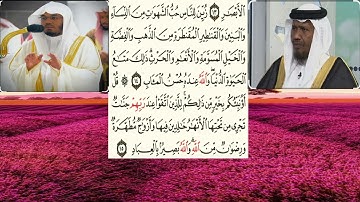 ٱلْأَبْصَٰرِ ١٣ زُيِّنَ لِلنَّاسِ حُبُّ ٱلشَّهَوَٰتِ مِنَ ٱلنِّسَآءِ
وَٱلْبَنِينَ وَٱلْقَنَٰطِيرِ ٱلْمُقَنطَرَةِ مِنَ ٱلذَّهَبِ وَٱلْفِضَّةِ
وَٱلْخَيْلِ ٱلْمُسَوَّمَةِ وَٱلْأَنْعَٰمِ وَٱلْحَرْثِ ذَٰلِكَ مَتَٰعُ
ٱلْحَيَوٰةِ ٱلدُّنْيَا وَٱللَّهُ عِندَهُۥ حُسْنُ ٱلْمَـَٔابِ ١٤ قُلْ
أَؤُنَبِّئُكُم بِخَيْرٍ مِّن ذَٰلِكُمْ لِلَّذِينَ ٱتَّقَوْا۟ عِندَ رَبِّهِمْ جَنَّٰتٌ
تَجْرِى مِن تَحْتِهَا ٱلْأَنْهَٰرُ خَٰلِدِينَ فِيهَا وَأَزْوَٰجٌ مُّطَهَّرَةٌ
وَرِضْوَٰنٌ مِّنَ ٱللَّهِ وَٱللَّهُ بَصِيرٌۢ بِٱلْعِبَادِ ١٥